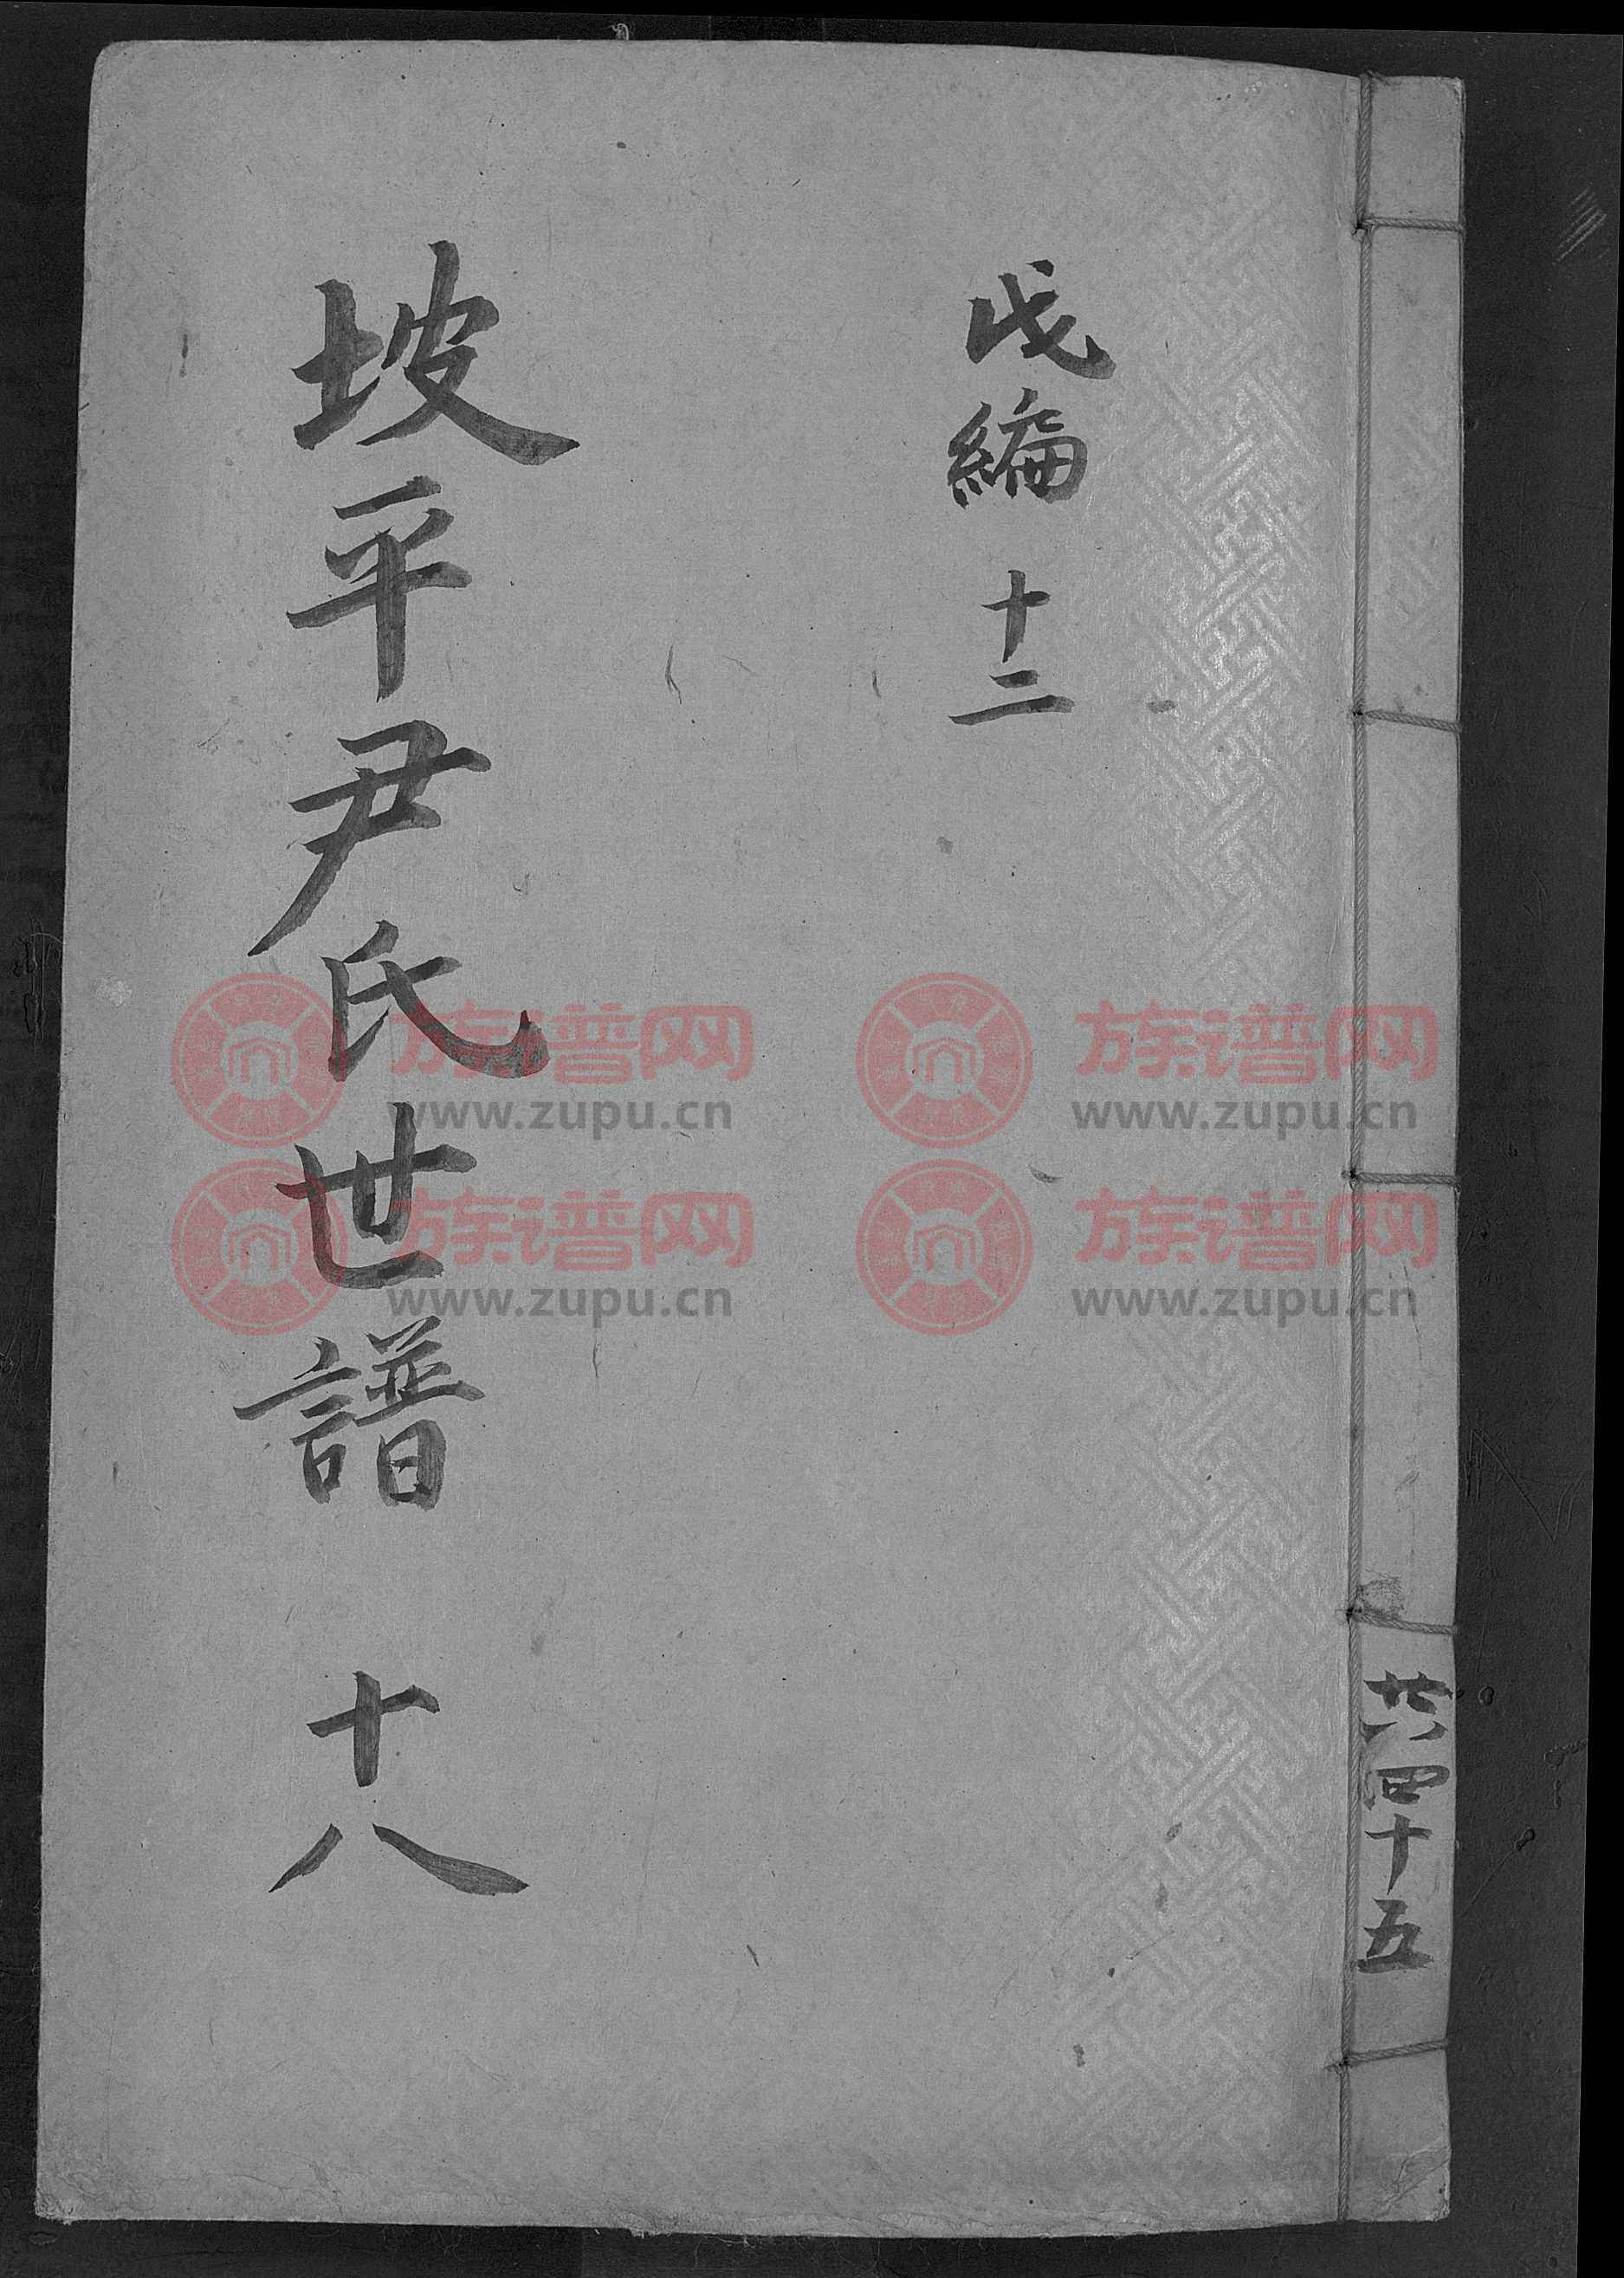 戊編 十二
坡平尹氏世譜 十八
共四十五
族谱网 族谱网
www.zupu.cn www.zupu.cn
族谱网 族谱网
www.zupu.cn www.zupu.cn